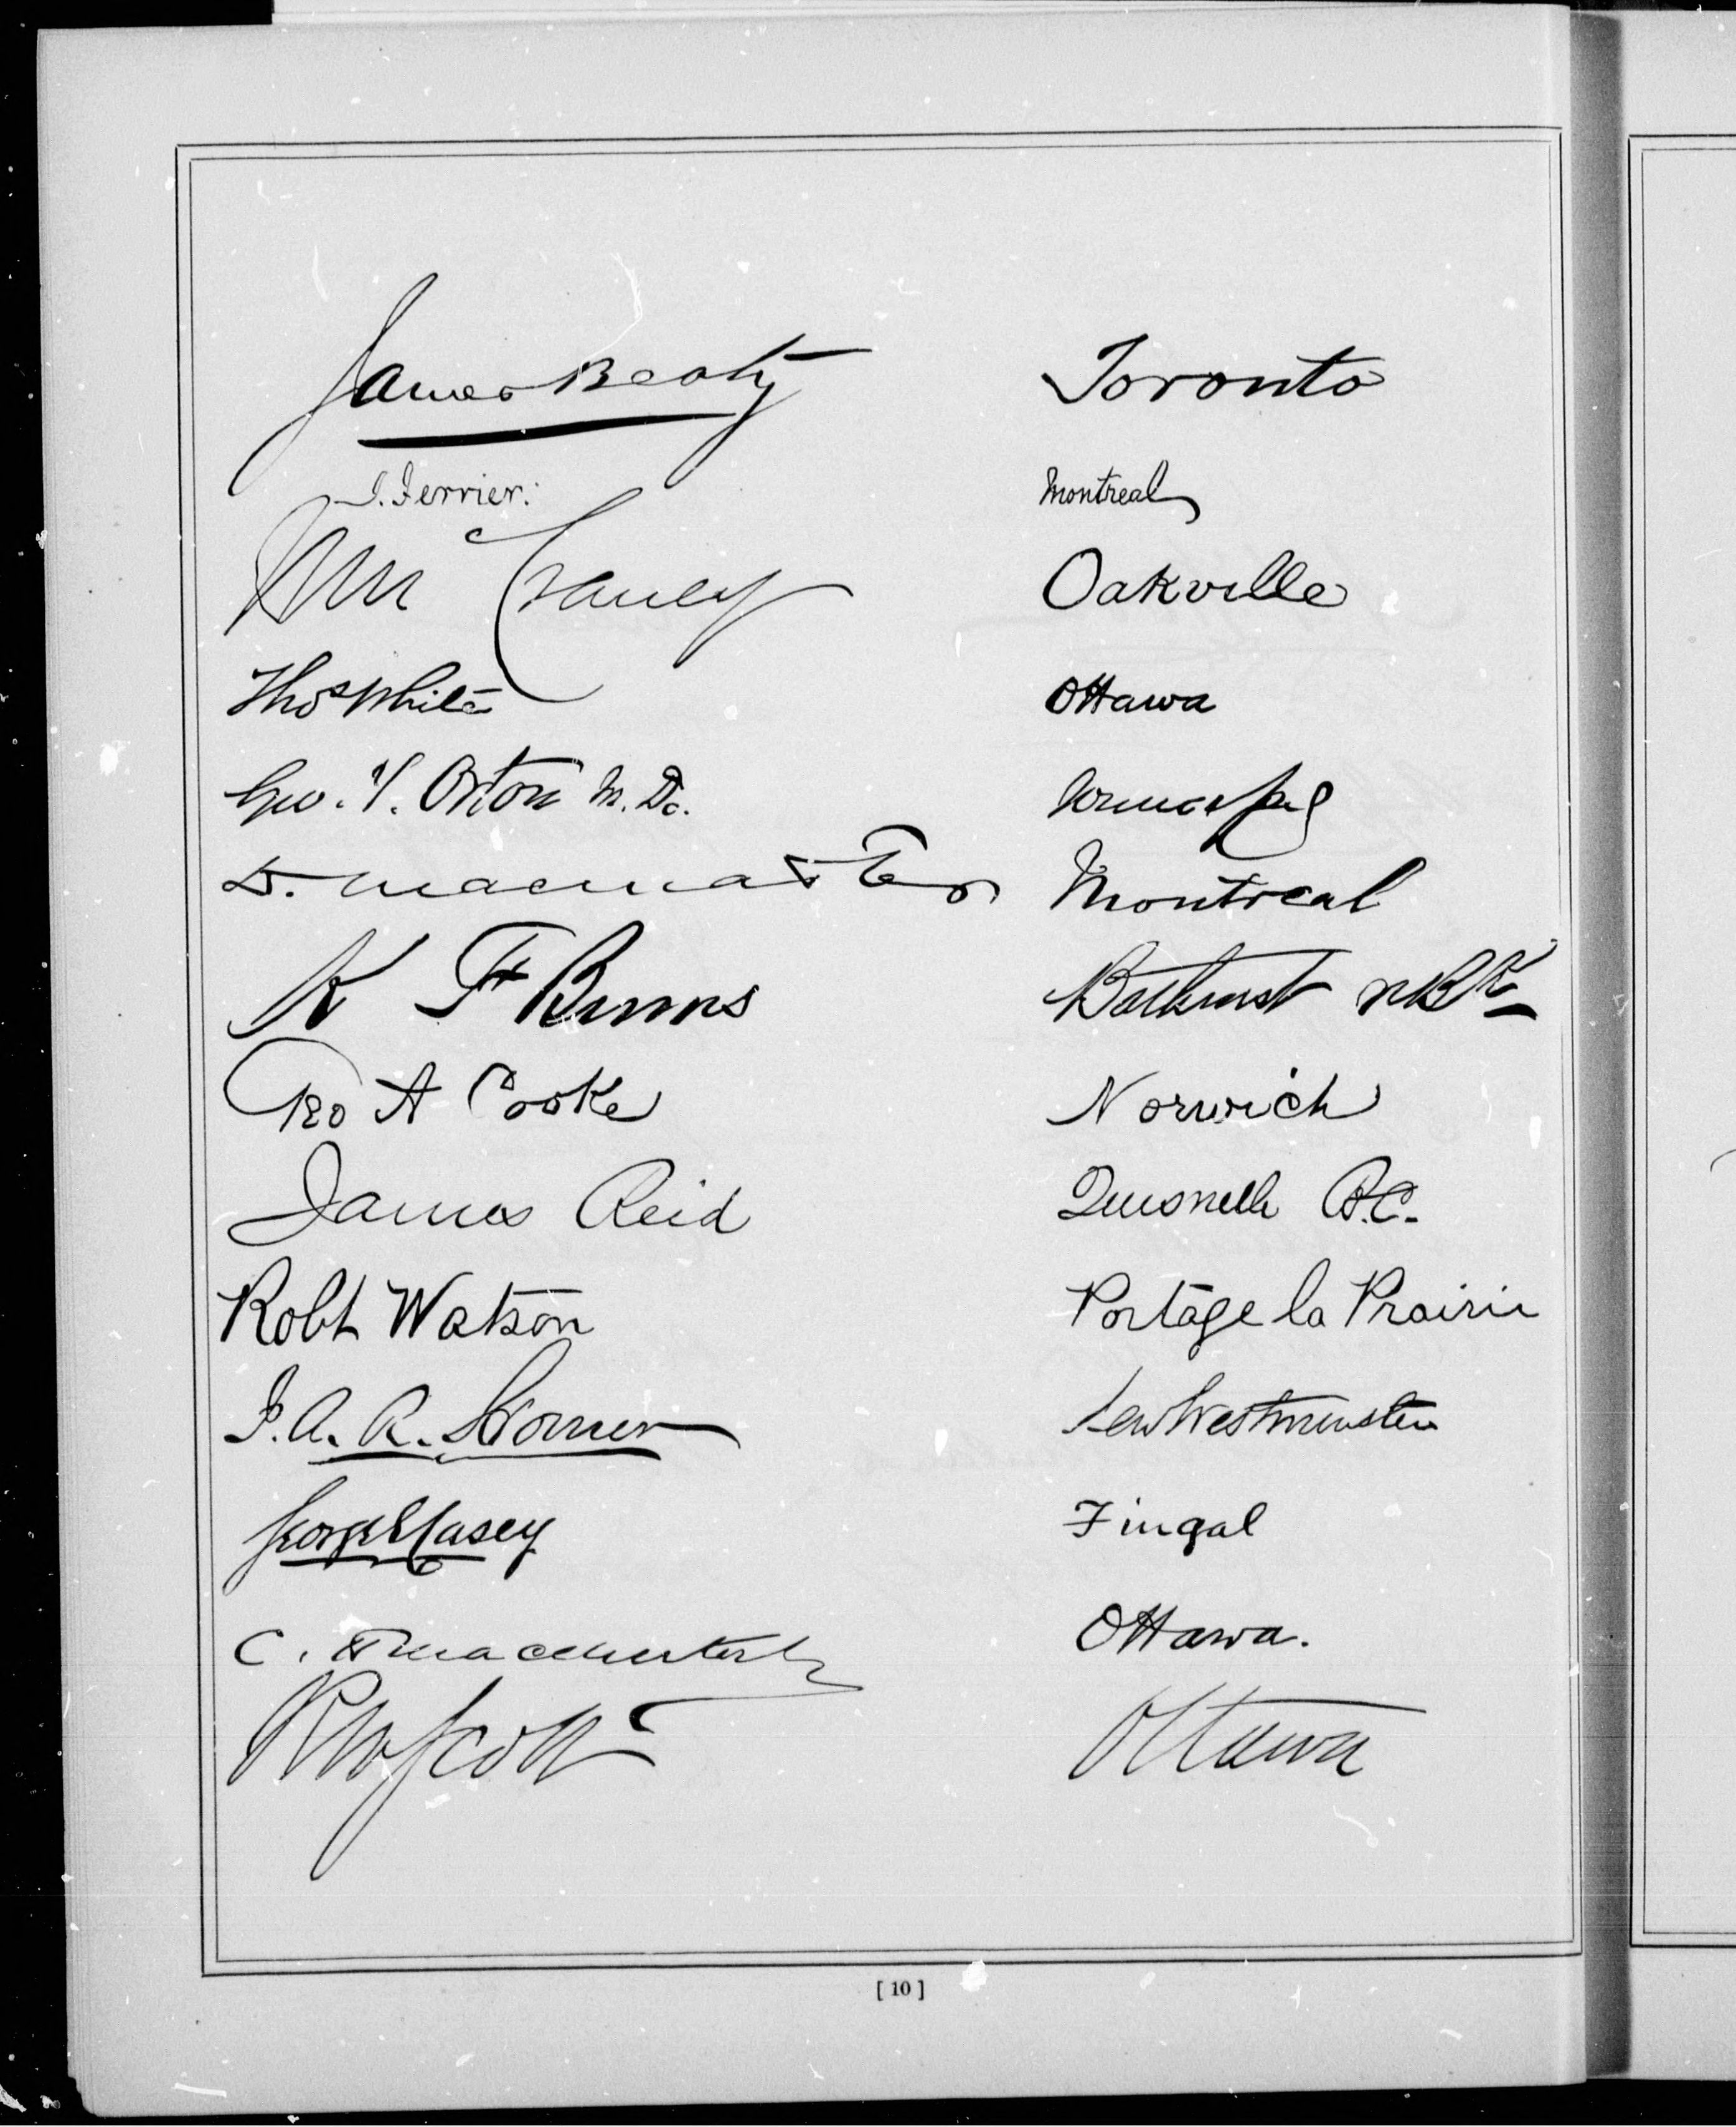 James Beaty Toronto
J. Ferrier. Montreal
Wm Oakville
Thos White Ottawa
Geo. T. Orton M.D. Winnipeg
D. Macmaster Montreal
K F Burns Bathurst NB
Geo A Cooke Norwich
James Reid Quesnelle B.C.
Robt Watson Portage la Prairie
J. A. R. Homer New Westminster
George E Casey Fingal
C. H Mackintosh Ottawa.
R W Scott Ottawa
[ 10 ]